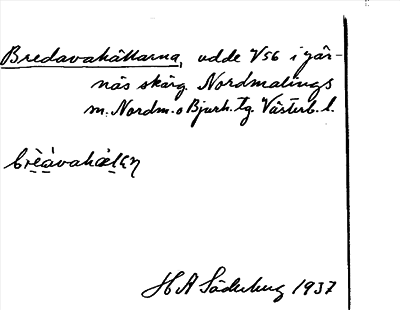 Bredavahällarna, udde V56 i Går-
näs skärg. Nordmalings
sn. Nordm. o Bjurh. tg. Västerb. l.
brèàvahæḷEn
H A Söderberg 1937